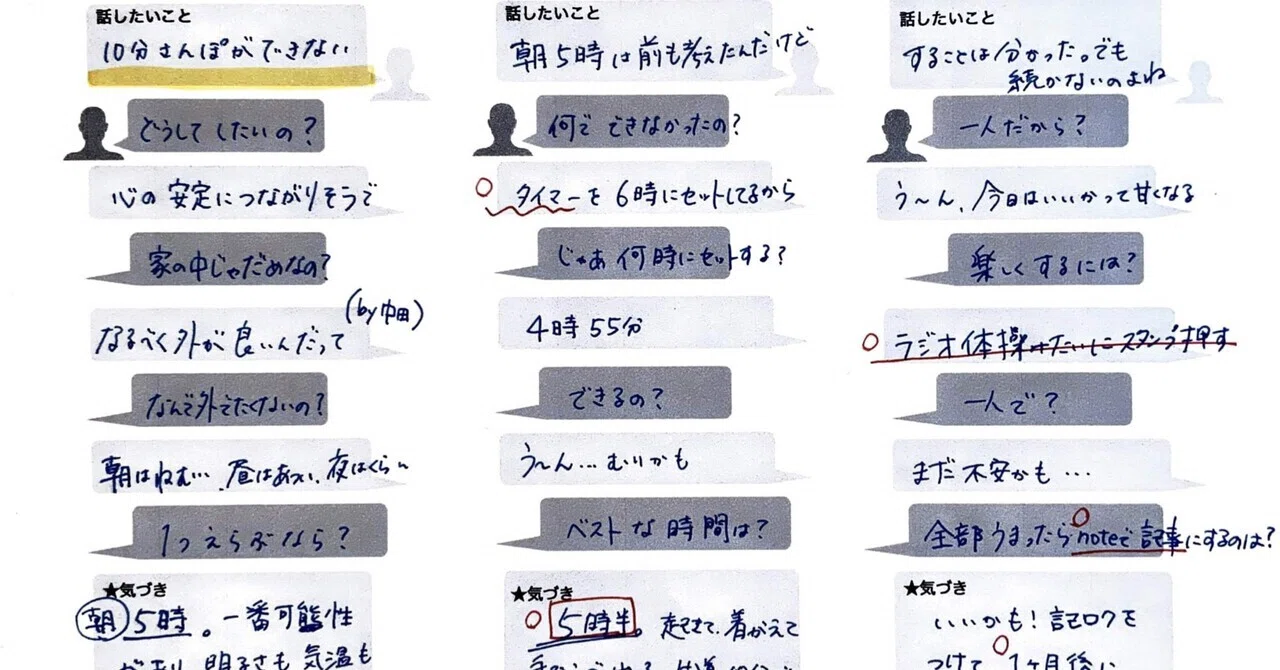 話したいこと
10分さんぽができない
どうしてしたいの?
心の安定につながりそうで
家の中じゃだめなの?
なるべく外が良いんだって
(by中田)
なんで外でたくないの?
朝はねむ… 昼はあつい、夜はくらい
1つえらぶなら?
★気づき
朝5時。一番可能性
があり、明るさも気温も
話したいこと
朝5時は前も考えたんだけど
何でできなかったの?
タイマーを6時にセットしてるから
じゃあ何時にセットする?
4時55分
できるの?
う〜ん…むりかも
ベストな時間は?
★気づき
5時半。起きて、着がえて
話したいこと
することは分かった。でも
続かないのよね
一人だから?
う〜ん、今日はいいかって甘くなる
楽しくするには?
ラジオ体操みたいにスタンプ押す
一人で?
まだ不安かも…
全部うまったらnoteで記事にするのは?
★気づき
いいかも!記ロクを
つけて1ヶ月後に